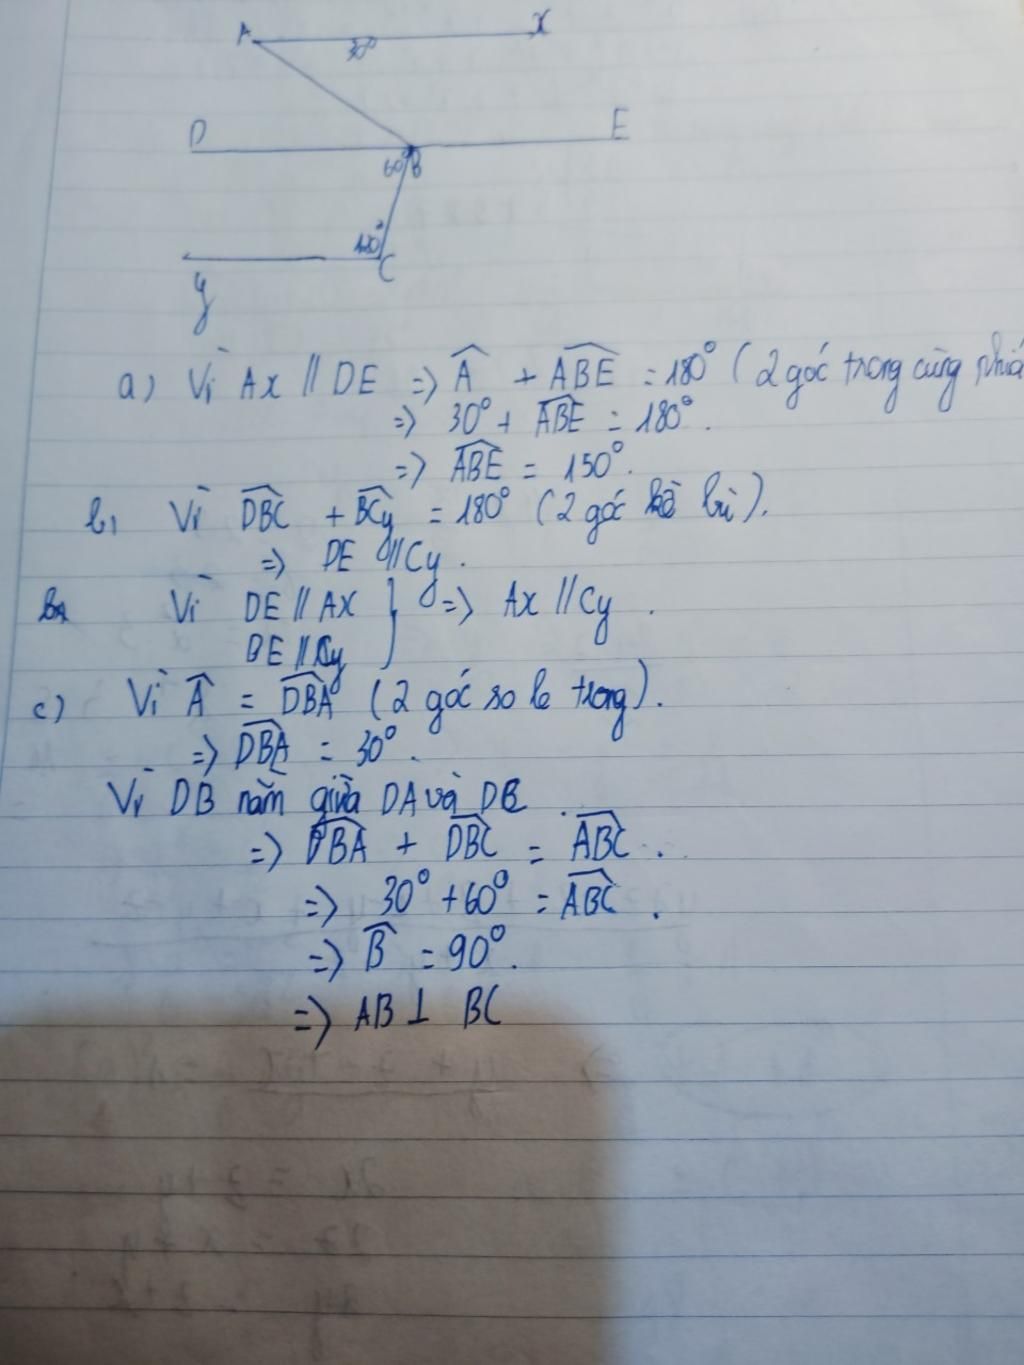 A x
30°
D E
60° B
120°
C
y
a) Vì Ax // DE => Â + ABE = 180° (2 góc trong cùng phía
=> 30° + ABE = 180°.
=> ABE = 150°.
b, Vì DBC + BCy = 180° (2 góc kề bù).
=> DE // Cy.
Vì DE // AX } => Ax // Cy.
BE // Cy
c) Vì Â = DBA (2 góc so le trong).
=> DBA = 30°.
Vì DB nằm giữa DA và DC
=> DBA + DBC = ABC.
=> 30° + 60° = ABC.
=> B = 90°.
=> AB ⊥ BC